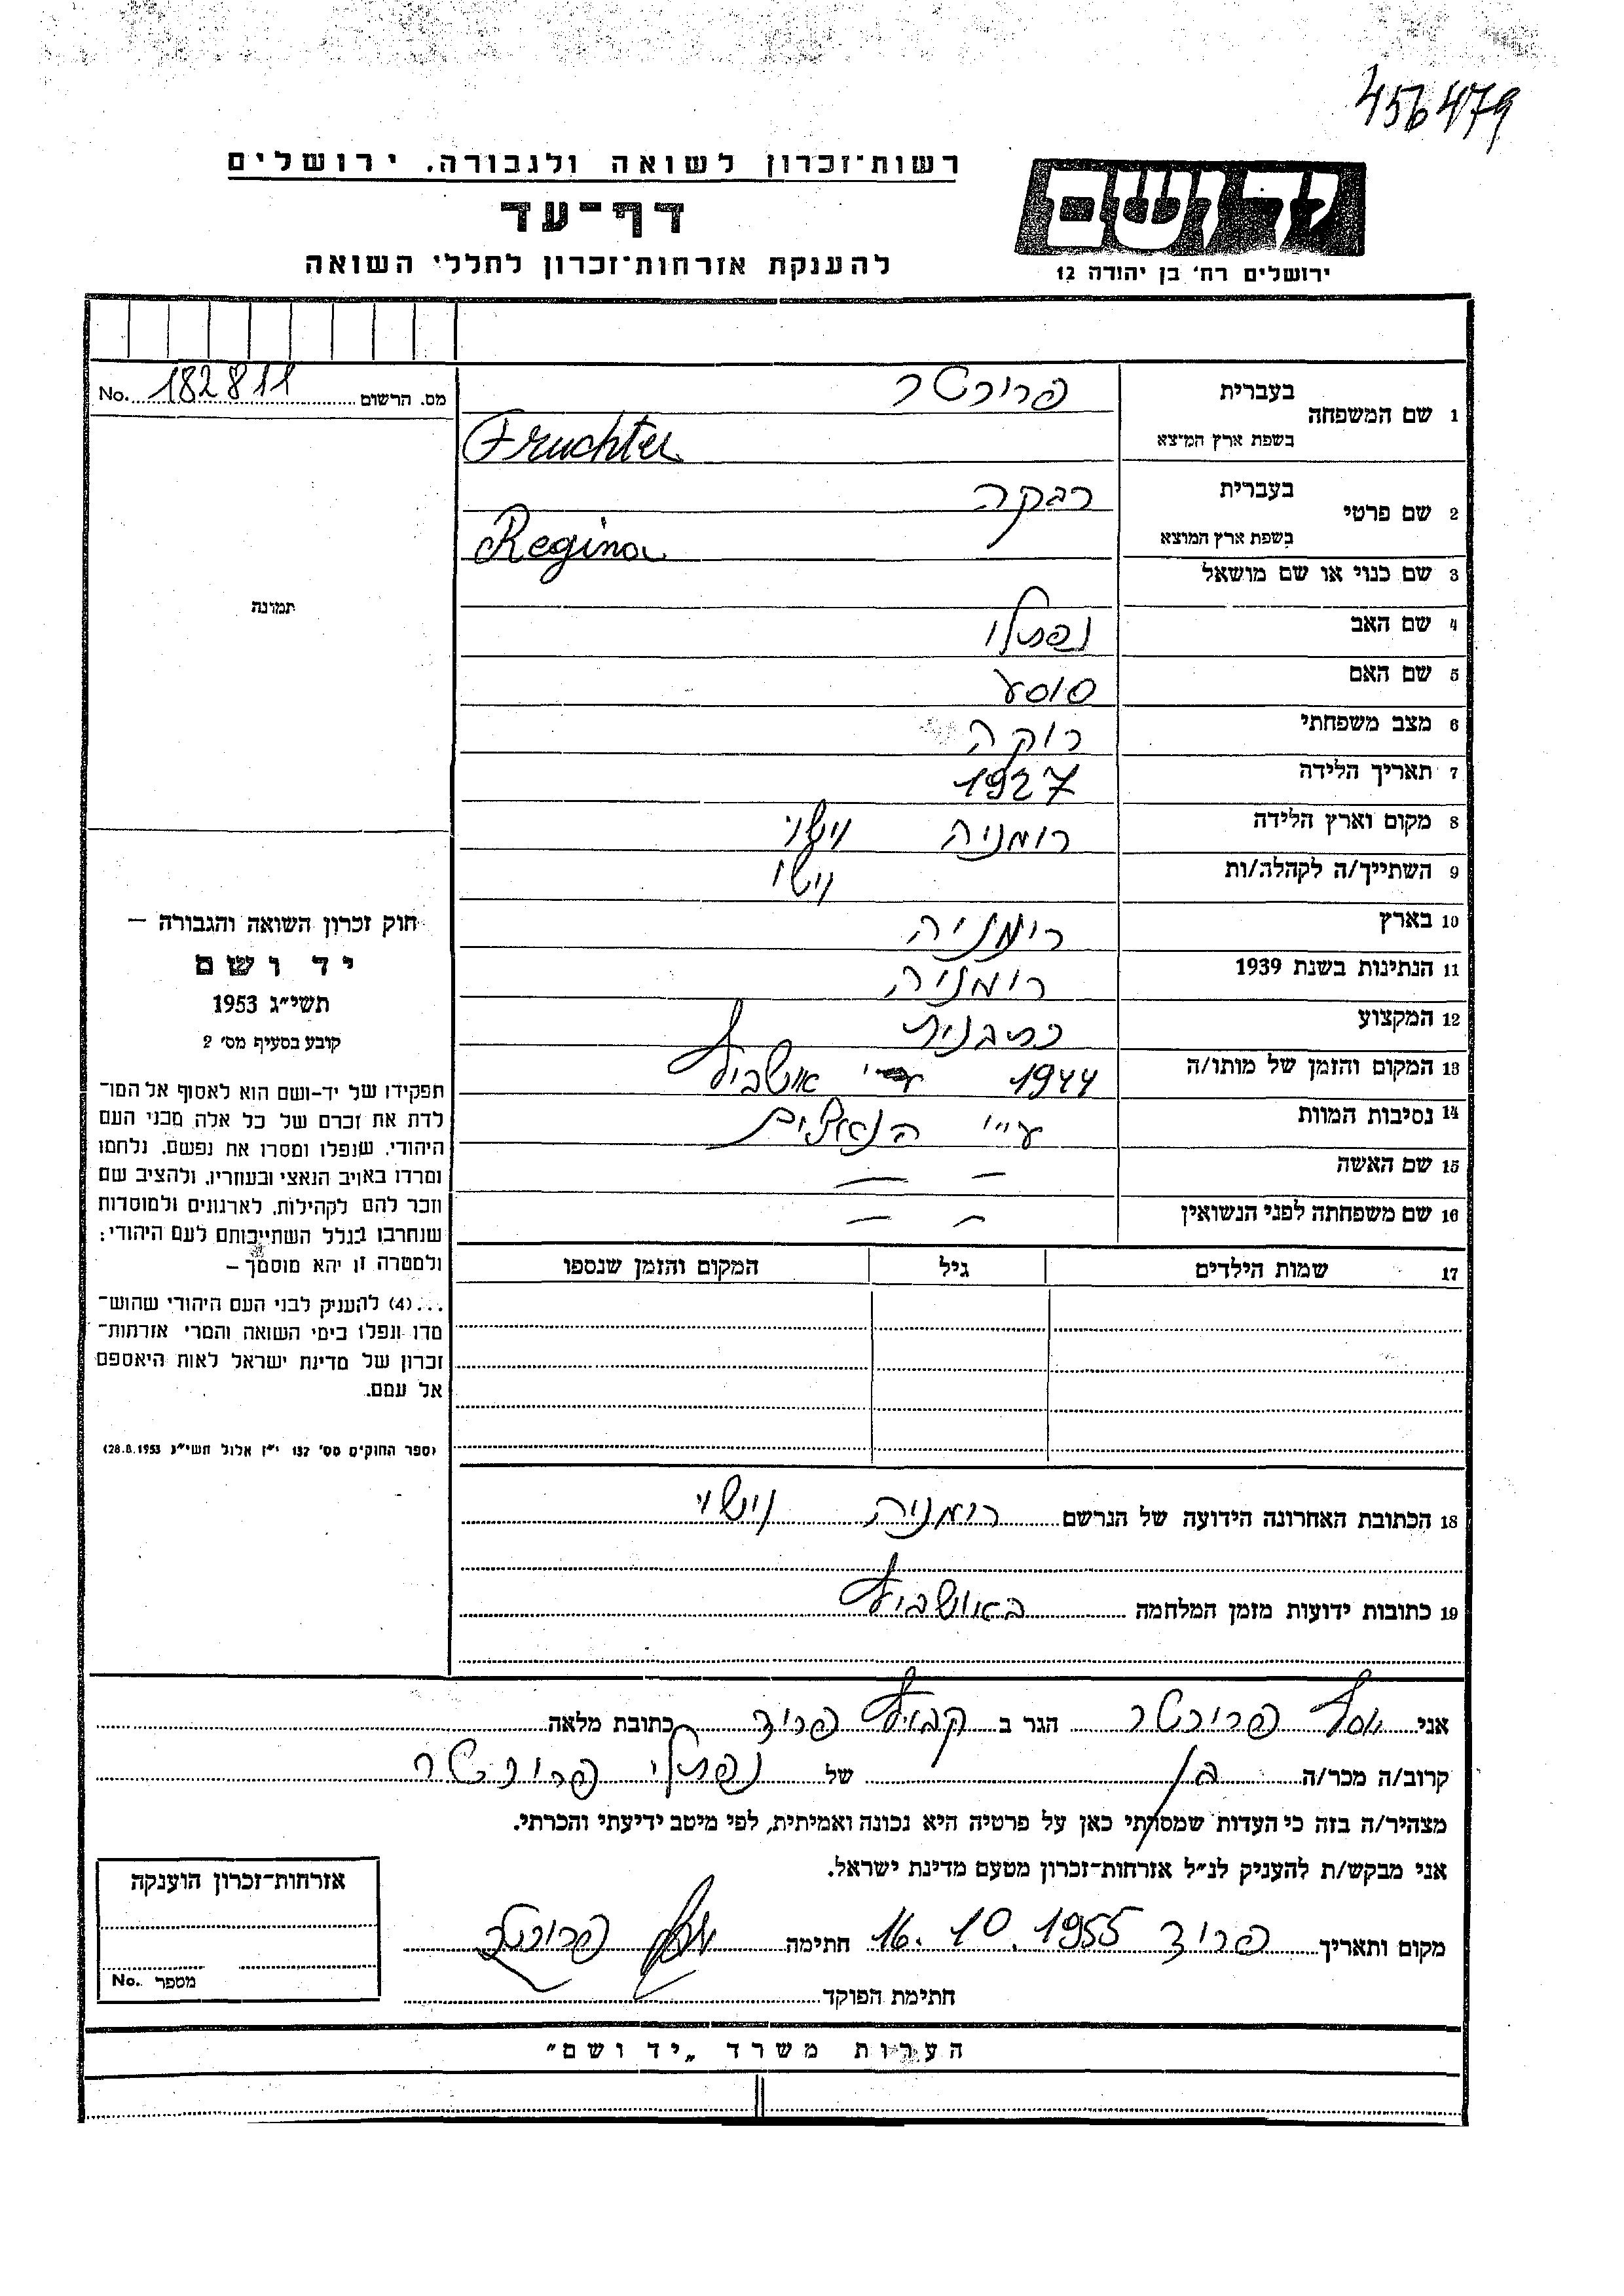 456479
רשות־זכרון לשואה ולגבורה. ירושלים
דף־עד
להענקת אזרחות־זכרון לחללי השואה
יד ושם
ירושלים רח׳ בן יהודה 12
מס. הרשום 182811 No.
תמונה
חוק זכרון השואה והגבורה —
יד ושם
תשי״ג 1953
קובע בסעיף מס׳ 2
תפקידו של יד-ושם הוא לאסוף אל המו־
לדת את זכרם של כל אלה מבני העם
היהודי, שנפלו ומסרו את נפשם, נלחמו
ומרדו באויב הנאצי ובעוזריו, ולהציב שם
וזכר להם לקהילות, לארגונים ולמוסדות
שנחרבו בגלל השתייכותם לעם היהודי;
ולמטרה זו יהא מוסמך —
...(4) להעניק לבני העם היהודי שהוש־
מדו ונפלו בימי השואה והמרי אזרחות־
זכרון של מדינת ישראל לאות היאספם
אל עמם.
(ספר החוקים מס׳ 132 י״ז אלול תשי״ג 28.8.1953)
1 שם המשפחה בעברית פרוכטר
בשפת ארץ המוצא Fruchter
2 שם פרטי בעברית רבקה
בשפת ארץ המוצא Regina
3 שם כנוי או שם מושאל
4 שם האב נפתלי
5 שם האם סוסע
6 מצב משפחתי רוקה
7 תאריך הלידה 1927
8 מקום וארץ הלידה רומניה וישוי
9 השתייך/ה לקהלה/ות וישוי
10 בארץ רומניה
11 הנתינות בשנת 1939 רומניה
12 המקצוע כתבנית
13 המקום והזמן של מותו/ה 1944 אושביץ
14 נסיבות המוות ע״י הנאצים
15 שם האשה — —
16 שם משפחתה לפני הנשואין — —
17 שמות הילדים גיל המקום והזמן שנספו
18 הכתובת האחרונה הידועה של הנרשם רומניה וישוי
19 כתובות ידועות מזמן המלחמה באושביץ
אני יוסף פרוכטר הגר ב קבוץ פרוד כתובת מלאה
קרוב/ה מכר/ה בן של נפתלי פרוכטר
מצהיר/ה בזה כי העדות שמסרתי כאן על פרטיה היא נכונה ואמיתית, לפי מיטב ידיעתי והכרתי.
אני מבקש/ת להעניק לנ״ל אזרחות־זכרון מטעם מדינת ישראל.
מקום ותאריך פרוד 16.10.1955 חתימה יוסף פרוכטר
חתימת הפוקד
אזרחות־זכרון הוענקה
מספר No.
הערות משרד „יד ושם״